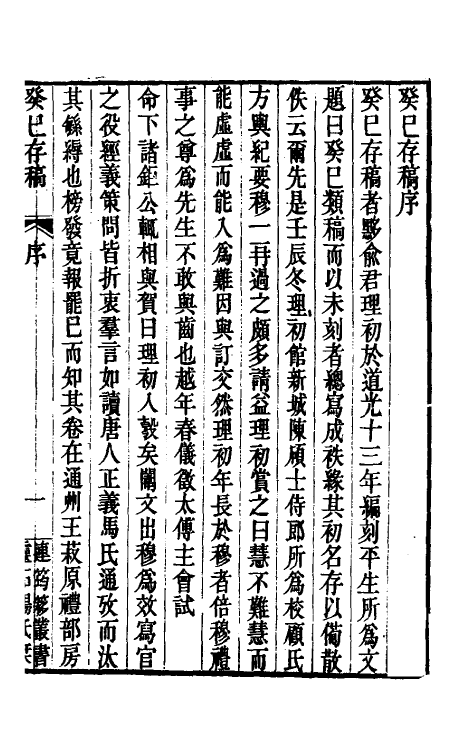 癸巳存稿序
癸巳存稿者黟俞君理初於道光十三年編刻平生所爲文
題曰癸巳類稿而以未刻者總寫成袟緣其初名存以僃散
佚云爾先是壬辰冬理初館新城陳碩士侍郎所爲校顧氏
方輿紀要穆一再過之頗多請益理初賞之曰慧不難慧而
能虛虛而能入爲難因與訂交然理初年長於穆者倍穆禮
事之尊爲先生不敢與齒也越年春儀徵太傅主會試
命下諸鉅公輒相與賀曰理初入彀矣闈文出穆爲效寫官
之役經義策問皆折衷羣言如讀唐人正義馬氏通攷而汰
其緐縟也榜發竟報罷巳而知其卷在通州王菽原禮部房
癸巳存稿
序
一
連筠簃叢書
靈石楊氏栞